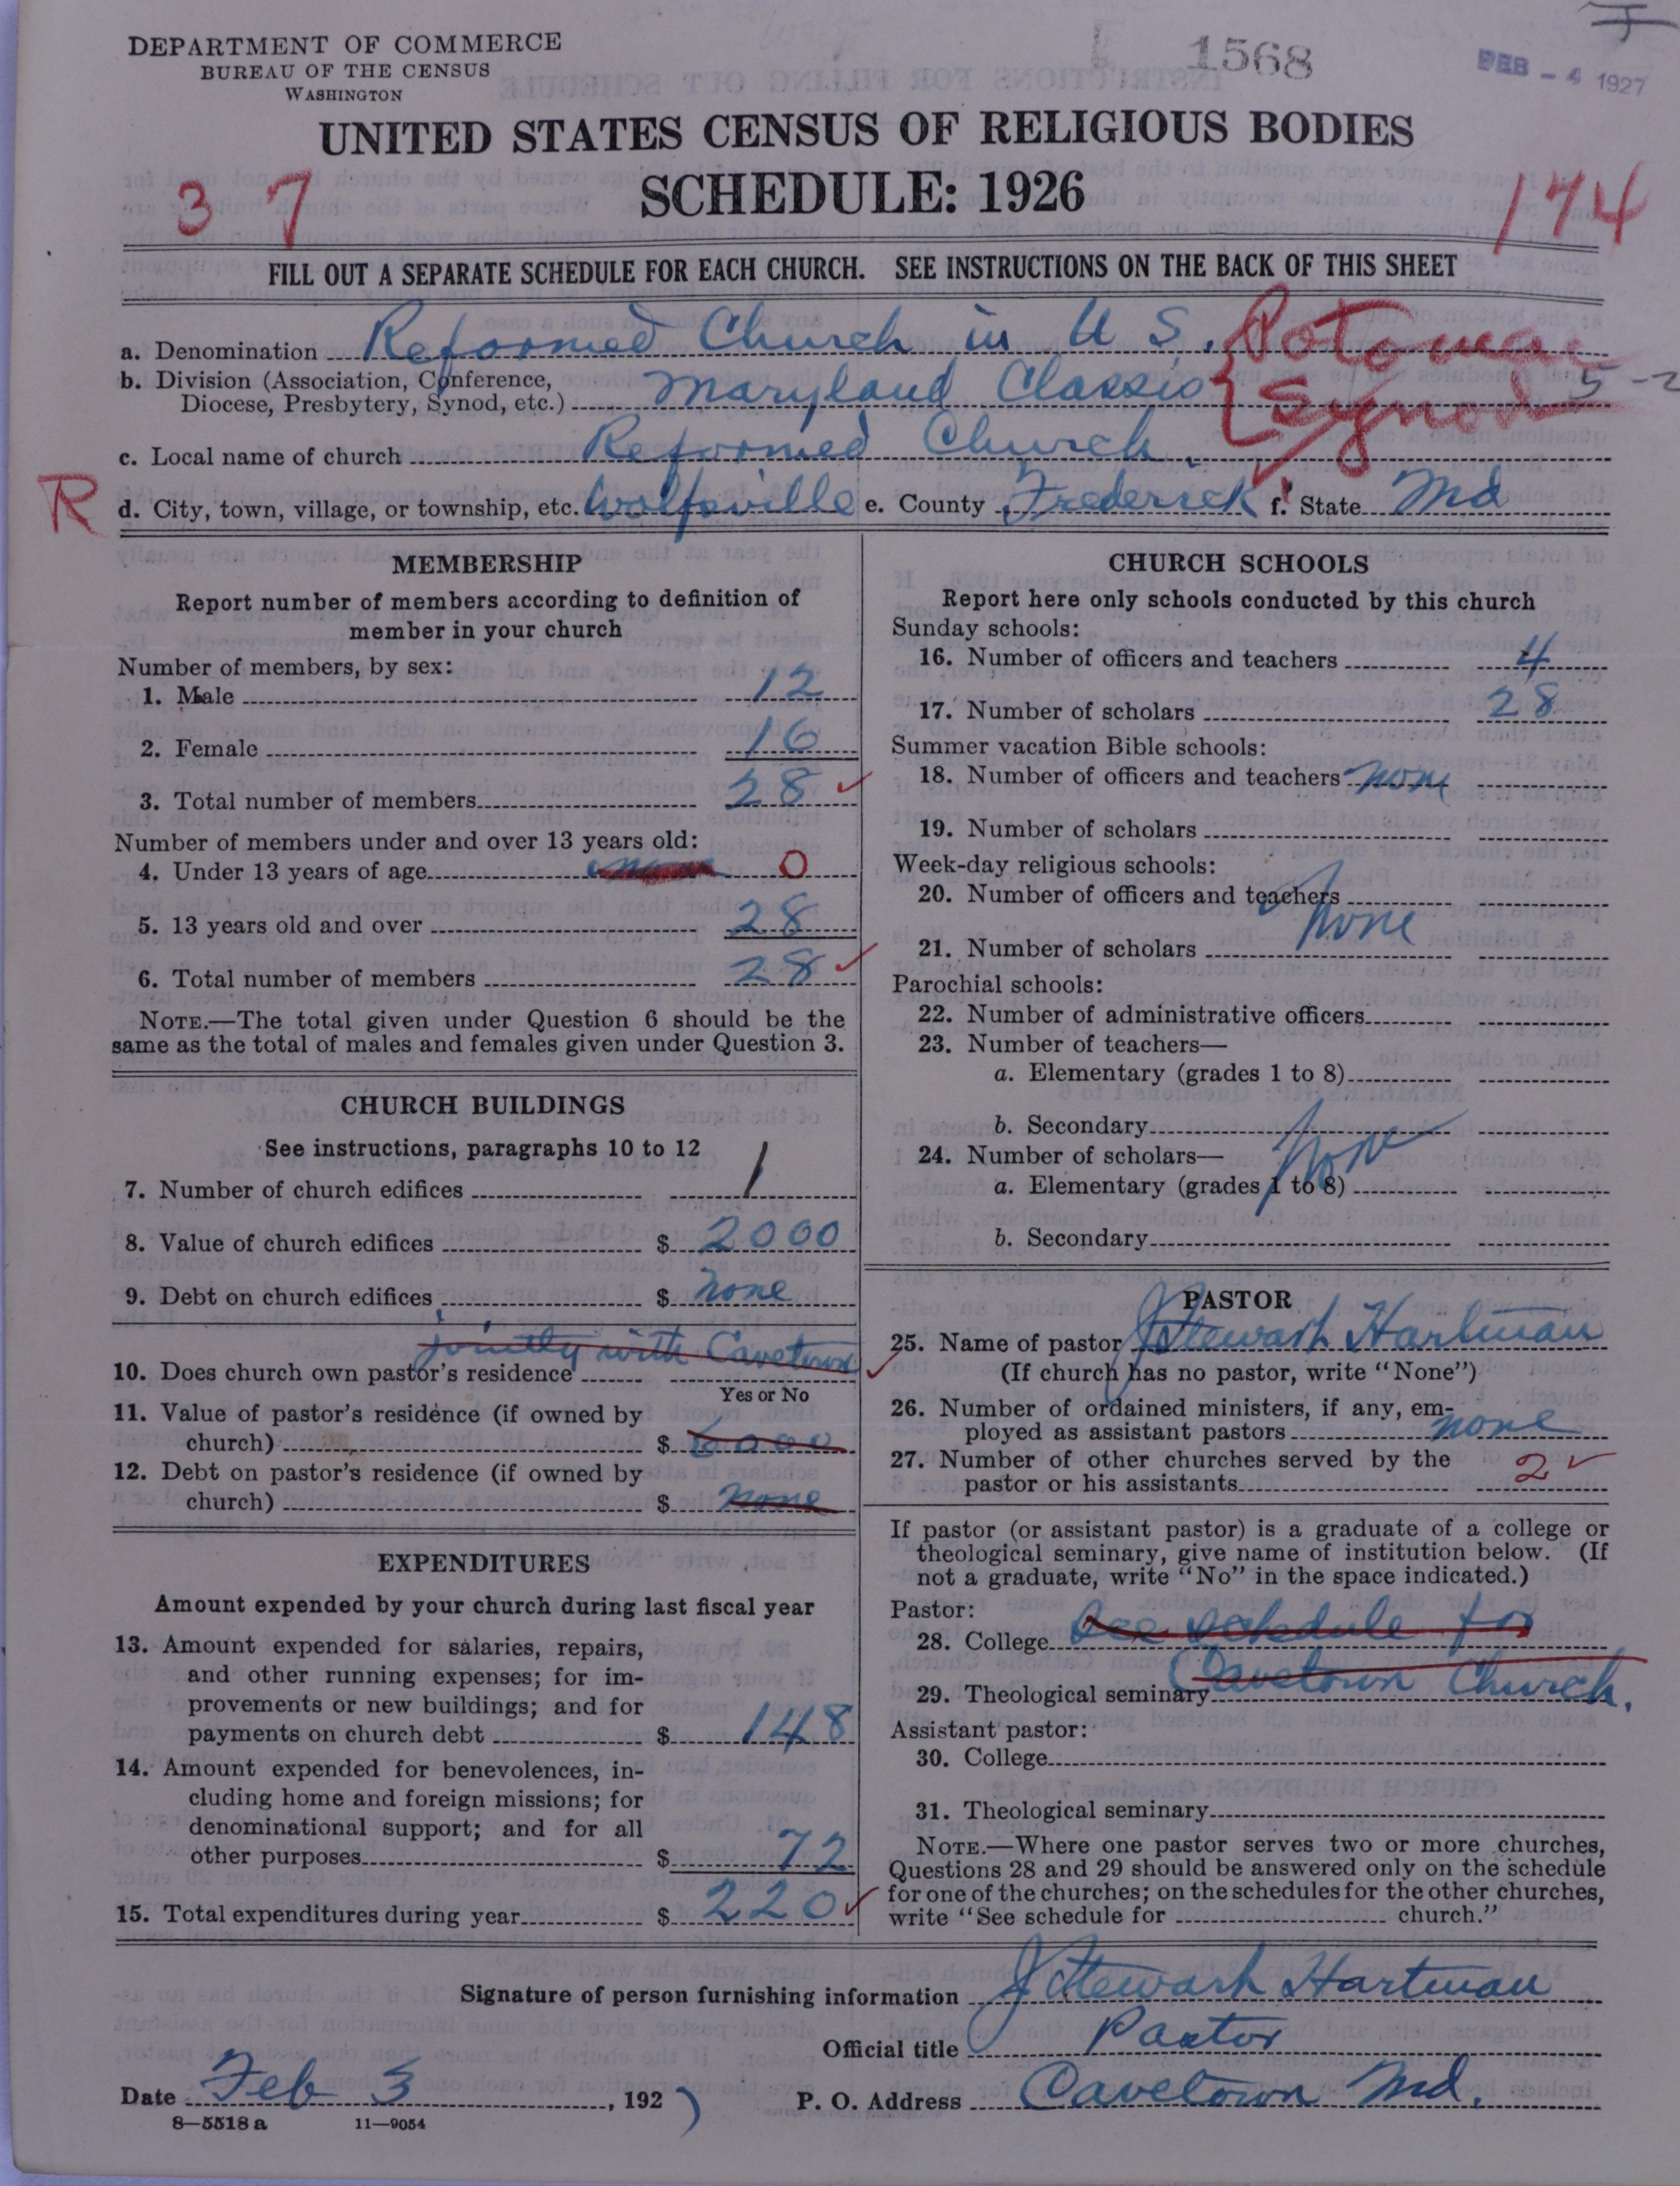 DEPARTMENT OF COMMERCE
BUREAU OF THE CENSUS
WASHINGTON
1568
FEB - 4 1927
UNITED STATES CENSUS OF RELIGIOUS BODIES
SCHEDULE: 1926
37
174
FILL OUT A SEPARATE SCHEDULE FOR EACH CHURCH. SEE INSTRUCTIONS ON THE BACK OF THIS SHEET
a. Denomination Reformed Church in U S. Potomac
b. Division (Association, Conference,
Diocese, Presbytery, Synod, etc.) Maryland Classis Synod 5-2
c. Local name of church Reformed Church.
R
d. City, town, village, or township, etc. Wolfsville e. County Frederick f. State Md
MEMBERSHIP
Report number of members according to definition of
member in your church
Number of members, by sex:
1. Male 12
2. Female 16
3. Total number of members 28
Number of members under and over 13 years old:
4. Under 13 years of age none 0
5. 13 years old and over 28
6. Total number of members 28
NOTE.—The total given under Question 6 should be the
same as the total of males and females given under Question 3.
CHURCH BUILDINGS
See instructions, paragraphs 10 to 12
7. Number of church edifices 1
8. Value of church edifices $ 2000
9. Debt on church edifices $ none
jointly with Cavetown
10. Does church own pastor's residence
Yes or No
11. Value of pastor's residence (if owned by
church) $ 6000
12. Debt on pastor's residence (if owned by
church) $ none
EXPENDITURES
Amount expended by your church during last fiscal year
13. Amount expended for salaries, repairs,
and other running expenses; for im-
provements or new buildings; and for
payments on church debt $ 148
14. Amount expended for benevolences, in-
cluding home and foreign missions; for
denominational support; and for all
other purposes $ 72
15. Total expenditures during year $ 220
CHURCH SCHOOLS
Report here only schools conducted by this church
Sunday schools:
16. Number of officers and teachers 4
17. Number of scholars 28
Summer vacation Bible schools:
18. Number of officers and teachers none
19. Number of scholars
Week-day religious schools:
20. Number of officers and teachers
none
21. Number of scholars
Parochial schools:
22. Number of administrative officers
23. Number of teachers—
a. Elementary (grades 1 to 8)
b. Secondary
24. Number of scholars— non
a. Elementary (grades 1 to 8)
b. Secondary
PASTOR
25. Name of pastor J Stewart Hartman
(If church has no pastor, write "None")
26. Number of ordained ministers, if any, em-
ployed as assistant pastors none
27. Number of other churches served by the
pastor or his assistants 2
If pastor (or assistant pastor) is a graduate of a college or
theological seminary, give name of institution below. (If
not a graduate, write "No" in the space indicated.)
Pastor:
28. College See schedule for
Cavetown Church.
29. Theological seminary
Assistant pastor:
30. College
31. Theological seminary
NOTE.—Where one pastor serves two or more churches,
Questions 28 and 29 should be answered only on the schedule
for one of the churches; on the schedules for the other churches,
write "See schedule for church."
Signature of person furnishing information J Stewart Hartman
Official title Pastor
Date Feb 3, 1927 P. O. Address Cavetown Md.
8—5518 a 11—9054